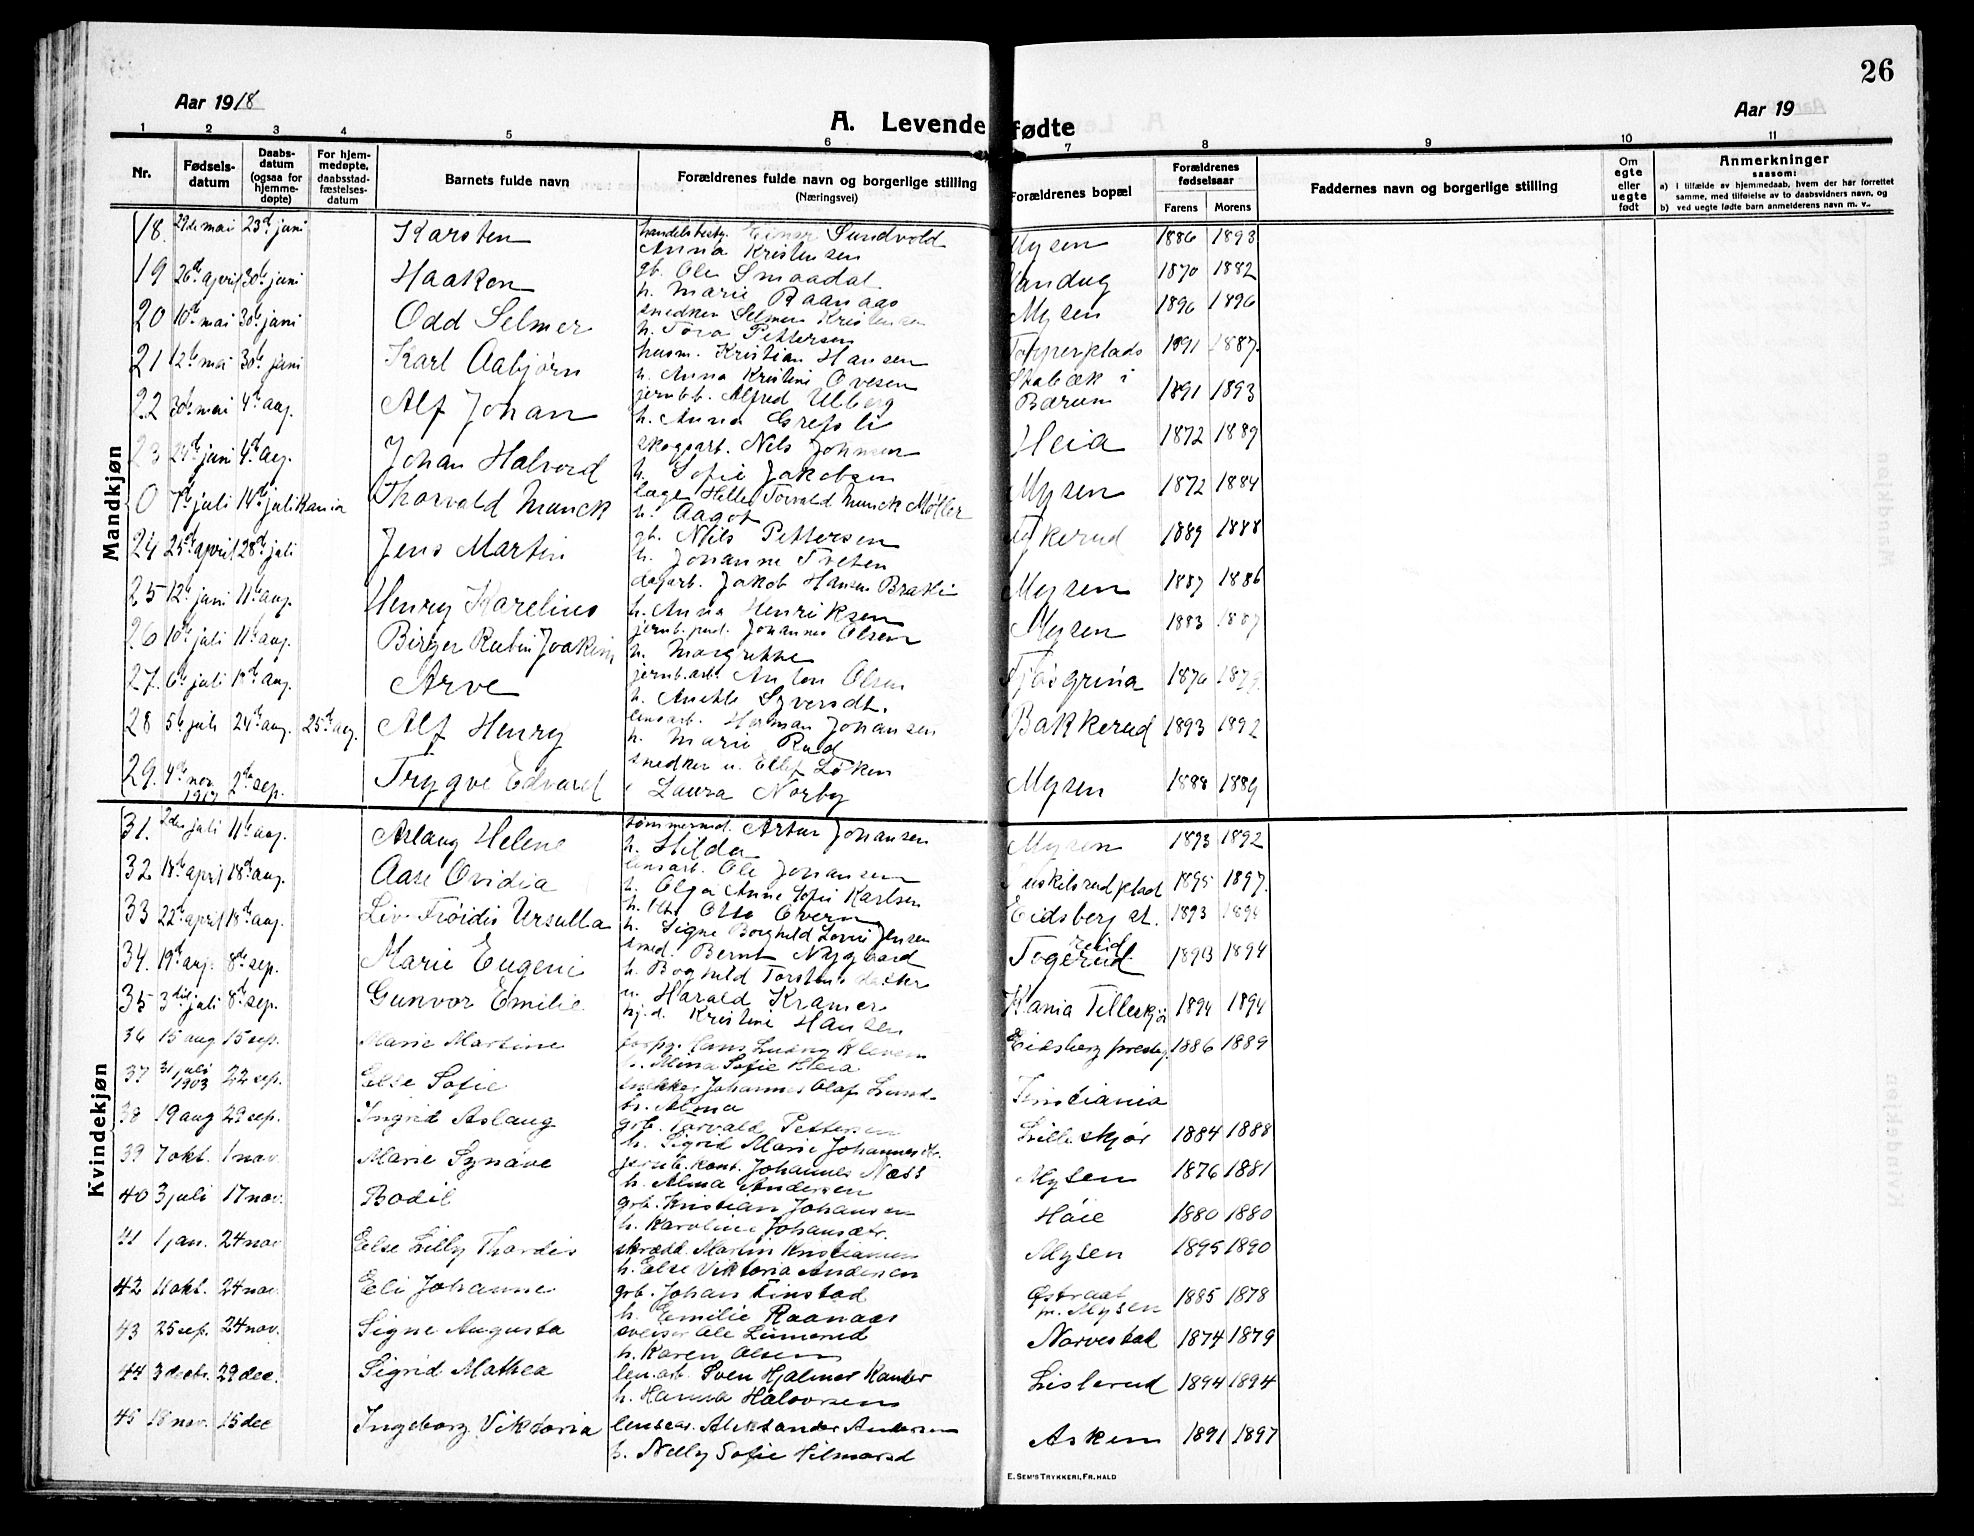 26
Aar 1918
Aar 19
A. Levende fødte
1 2 3 4 5 6 7 8 9 10 11
Nr.
Fødsels-
datum
Daabs-
datum
(ogsaa for
hjemme-
døpte)
For hjem-
medøpte,
daabsstad-
fæstelses-
datum
Barnets fulde navn
Forældrenes fulde navn og borgerlige stilling
(Næringsvei)
Forældrenes bopæl
Forældrenes
fødselsaar
Farens Morens
Faddernes navn og borgerlige stilling
Om
egte
eller
uegte
født
Anmerkninger
saasom:
a) i tilfælde av hjemmedaab, hvem der har forrettet
samme, med tilføielse av to daabsvidners navn, og
b) ved uegte fødte barn anmelderens navn m. v.
Mandkjøn
18. 29de mai 23de juni Karsten handelsbesty. Einar Sundvold Mysen 1886 1893
Anna Kristensen
19 26de april 30te juni Haakon gb. Ole Smaadal 1870 1882
h. Marie Raanaas
20 10de mai 30te juni Odd Selmer snedker Selmer Kristensen Mysen 1896 1896
h. Tora Pettersen
21 12te mai 30te juni Karl Aabjørn husm. Kristian Hansen Topperplads 1891 1887.
h. Anna Kristine Ovesen
22 30te mai 4de aug. Alf Johan jernb.b. Alfred Ulberg Stabæk i Bærum 1891 1893
h. Anna Grefsli
23 29de juni 4de aug. Johan Halvord skogsarb. Nils Johnsen Heia 1872 1889
h. Sofie Jakobsen
0 7de juli 14de juli Kania Thorvald Munck læge Helle Torvald Munck Møller Mysen 1872 1884
h. Aagot
24 25de april 28de juli Jens Martin gb. Nils Pettersen 1889 1888
h. Johanne Treten
25 12te juni 11te aug. Henry Karelius dagarb. Jakob Hansen Mysen 1887 1886
h. Anna Henriksen
26 10de juli 11te aug. Birger Rubin Joakim Johannes Olsen Mysen 1883 1887
h. Margrethe
27. 6te juli 18de aug. Arve jernb.arb. Anton Olsen 1876 1879.
h. Anette Syversdt.
28 5te juli 24de aug. 25de aug. Alf Henry lensarb. Herman Johansen Bakkerud 1893 1892
h. Marie Rud
29. 4de nov. 1917 2de sep. Trygve Edvard snedker u. Ellef Løken Mysen 1888 1889
Laura Norby
Kvindekjøn
31. 2den juli 11te aug. Aslaug Helene tømmermd. Artur Johansen Mysen 1893 1892
h. Hilda
32 18de april 18de aug. Aase Ovidia lensarb. Ole Johansen 1895 1897.
h. Olga Anne Sofie Karlsen
33 22de april 18de aug. Liv Froidis Ursulla Otto Overn Eidsberg st. 1893 1896
h. Signe Borghild Lovise Jensen
34. 19de aug. 8de sep. Marie Eugenie smed. Bernt Nygaard Togerud 1893 1894
h. Boghild Torstensdatter
35 3die juli 8de sep. Gunvor Emilie u. Harald Kramer Kania Tilleskjør 1894 1894
tj.d. Kristine Hansen
36 15 aug 15 sep. Marie Martine forpg. Hans Ludvig Kleven Eidsberg presteg. 1886 1889
h. Mina Sofie Heia
37 31 juli 1903 22 sep. Else Sofie snekker Johannes Olaf Lund Kristiania
h. Alma
38 19 aug 29 sep. Ingrid Aslaug grb. Torvald Pettersen Lilleskjør 1884 1888
h. Sigrid Marie Johannesdt.
39 7 okt. 1 nov. Marie Synøve jernb.kont. Johannes Næss Mysen 1876 1881
h. Alma Andersen
40 3 juli 17 nov. Bodil grb. Kristian Johansen Høie 1880 1880
h. Karoline Johansdtr.
41 1 jan. 24 nov Else Lilly Thordis skrædd. Martin Kristiansen Mysen 1895 1890
h. Else Viktoria Andersen
42 11 okt. 24 nov. Eli Johanne grb. Johan Finstad Østraat pr. Mysen 1885 1878
h. Emilie Raanaas
43 25 sep. 24 nov. Signe Augusta sveiser Ole Limerud Narvestad 1874 1879
h. Karen Olsen
44 3 decbr. 29 dec. Sigrid Mathea len.arb. Sven Hjalmar Kander Lislerud 1894 1894
h. Hanna Halvorsen
45 18 nov. 15 dec Ingeborg Viktoria Aleksander Andersen Askim 1891 1897
h. Nelly Sofie Vilmarsd
E. SEM'S TRYKKERI, FR. HALD